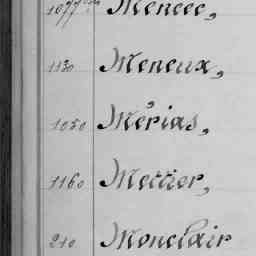 1077 Mencée,
1130 Meneux,
1050 Mérias,
1160 Mettior,
210 Monclair